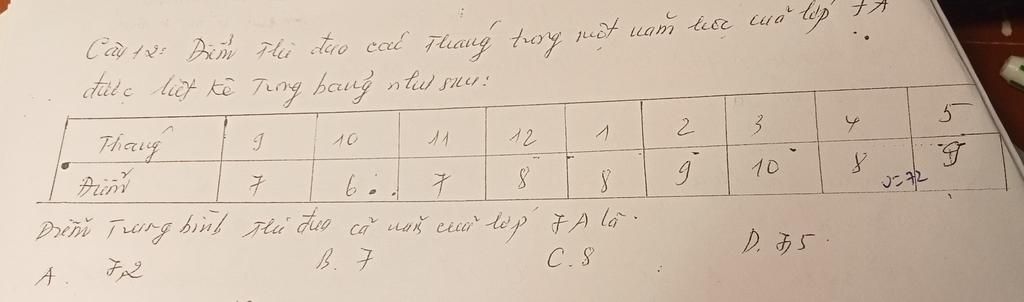 Câu 12: Điểm thi đua các tháng trong một năm học của lớp 7A
được liệt kê trong bảng như sau:
Tháng 9 10 11 12 1 2 3 4 5
Điểm 7 6 7 8 8 9 10 8 9
=72
Điểm trung bình thi đua cả năm của lớp 7A là:
A. 7,2 B. 7 C. 8 D. 7,5